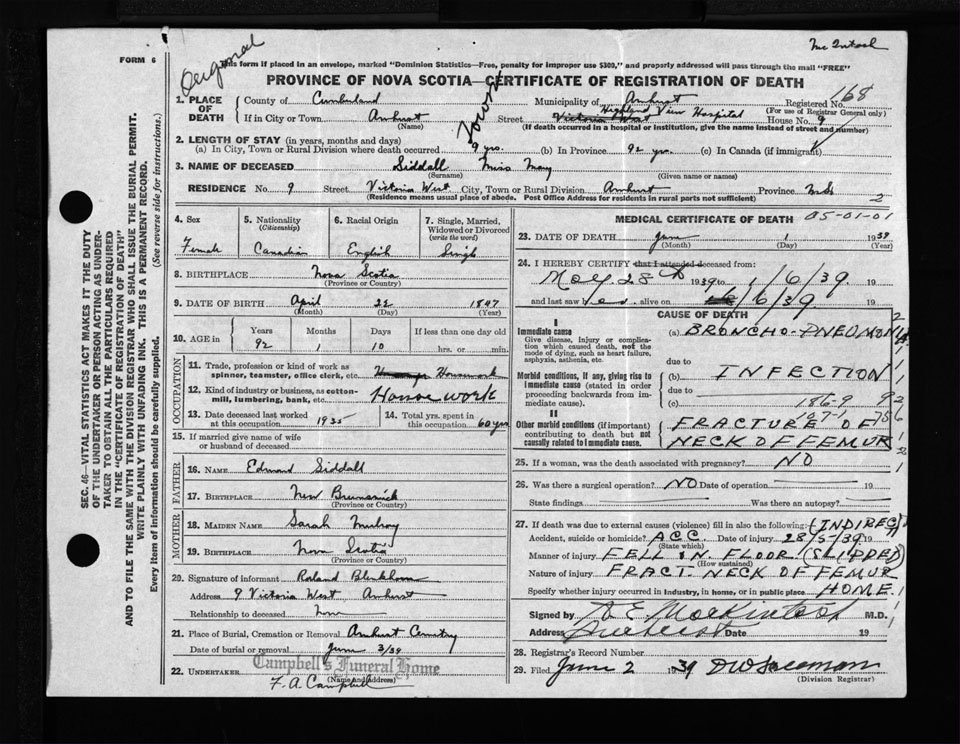 Mc Intosh
FORM 6
Original
This form if placed in an envelope, marked "Dominion Statistics—Free, penalty for improper use $300," and properly addressed will pass through the mail "FREE"
PROVINCE OF NOVA SCOTIA—CERTIFICATE OF REGISTRATION OF DEATH
168
1. PLACE OF DEATH
County of Cumberland Municipality of Amherst Registered No.
(For use of Registrar General only)
Town
If in City or Town Amherst Street Victoria West Highland View Hospital House No. 9
(Name) (If death occurred in a hospital or institution, give the name instead of street and number)
2. LENGTH OF STAY (in years, months and days)
(a) In City, Town or Rural Division where death occurred 9 yrs. (b) In Province 92 yrs. (c) In Canada (if immigrant)
3. NAME OF DECEASED Siddall Miss May
(Surname) (Given name or names)
RESIDENCE No. 9 Street Victoria West City, Town or Rural Division Amherst Province N.S.
(Residence means usual place of abode. Post Office Address for residents in rural parts not sufficient) 2
4. Sex
Female
5. Nationality
(Citizenship)
Canadian
6. Racial Origin
English
7. Single, Married, Widowed or Divorced
(write the word)
Single
8. BIRTHPLACE Nova Scotia
(Province or Country)
9. DATE OF BIRTH April 22 1847
(Month) (Day) (Year)
10. AGE in
Years Months Days If less than one day old
92 1 10 hrs. or min.
OCCUPATION
11. Trade, profession or kind of work as spinner, teamster, office clerk, etc. Housework
12. Kind of industry or business, as cotton-mill, lumbering, bank, etc. Home work
13. Date deceased last worked at this occupation 1935
14. Total yrs. spent in this occupation 60 yrs
15. If married give name of wife or husband of deceased
FATHER
16. Name Edmond Siddall
17. BIRTHPLACE New Brunswick
(Province or Country)
MOTHER
18. MAIDEN NAME Sarah
19. BIRTHPLACE Nova Scotia
(Province or Country)
20. Signature of informant Roland Blenkhorn
Address 9 Victoria West Amherst
Relationship to deceased
21. Place of Burial, Cremation or Removal Amherst Cemetry
Date of burial or removal June 3/39
Campbell's Funeral Home
22. UNDERTAKER F. A. Campbell
(Name and Address)
MEDICAL CERTIFICATE OF DEATH 05-01-01
23. DATE OF DEATH June 1 1939
(Month) (Day) (Year)
24. I HEREBY CERTIFY that I attended deceased from:
May 28th 1939 to 1/6/39. 19
and last saw her alive on 1/6/39 19
CAUSE OF DEATH
I
Immediate cause (a) BRONCHO-PNEUMONIA
Give disease, injury or complication which caused death, not the mode of dying, such as heart failure, asphyxia, asthenia, etc.
due to
Morbid conditions, if any, giving rise to immediate cause (stated in order proceeding backwards from immediate cause).
(b) INFECTION
due to
(c) 186-9 92
127-1 75
II
Other morbid conditions (if important) contributing to death but not causally related to immediate cause.
FRACTURE OF
NECK OF FEMUR
25. If a woman, was the death associated with pregnancy? NO
26. Was there a surgical operation? NO Date of operation 19
State findings Was there an autopsy?
27. If death was due to external causes (violence) fill in also the following: (INDIREC
Accident, suicide or homicide? ACC. Date of injury 28/5/39 19
(State which)
Manner of injury FELL IN FLOOR (SLIPPED)
(How sustained)
Nature of injury FRACT. NECK OF FEMUR
Specify whether injury occurred in industry, in home, or in public place HOME.
Signed by A E Mackintosh M.D.
Address Amherst Date 19
28. Registrar's Record Number
29. Filed June 2 1939
(Division Registrar)
SEC. 46—VITAL STATISTICS ACT MAKES IT THE DUTY OF THE UNDERTAKER OR PERSON ACTING AS UNDERTAKER TO OBTAIN ALL THE PARTICULARS REQUIRED IN THE "CERTIFICATE OF REGISTRATION OF DEATH"
AND TO FILE THE SAME WITH THE DIVISION REGISTRAR WHO SHALL ISSUE THE BURIAL PERMIT.
WRITE PLAINLY WITH UNFADING INK. THIS IS A PERMANENT RECORD.
Every item of information should be carefully supplied. (See reverse side for instructions.)